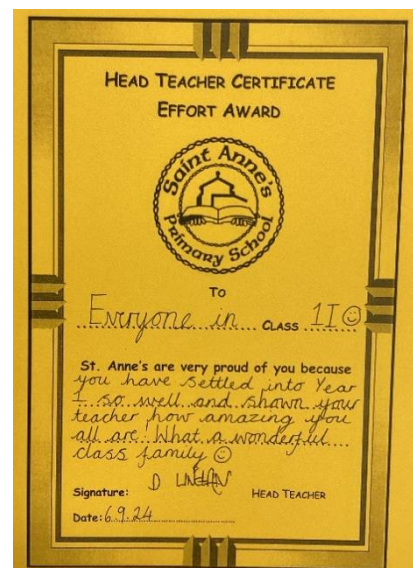 HEAD TEACHER CERTIFICATE
EFFORT AWARD
Saint Anne's
Primary School
TO
Everyone in CLASS 1I ☺
St. Anne's are very proud of you because
you have settled into Year
1 so well and shown your
teacher how amazing you
all are. What a wonderful
class family ☺
Signature: D HEAD TEACHER
Date: 6.9.24